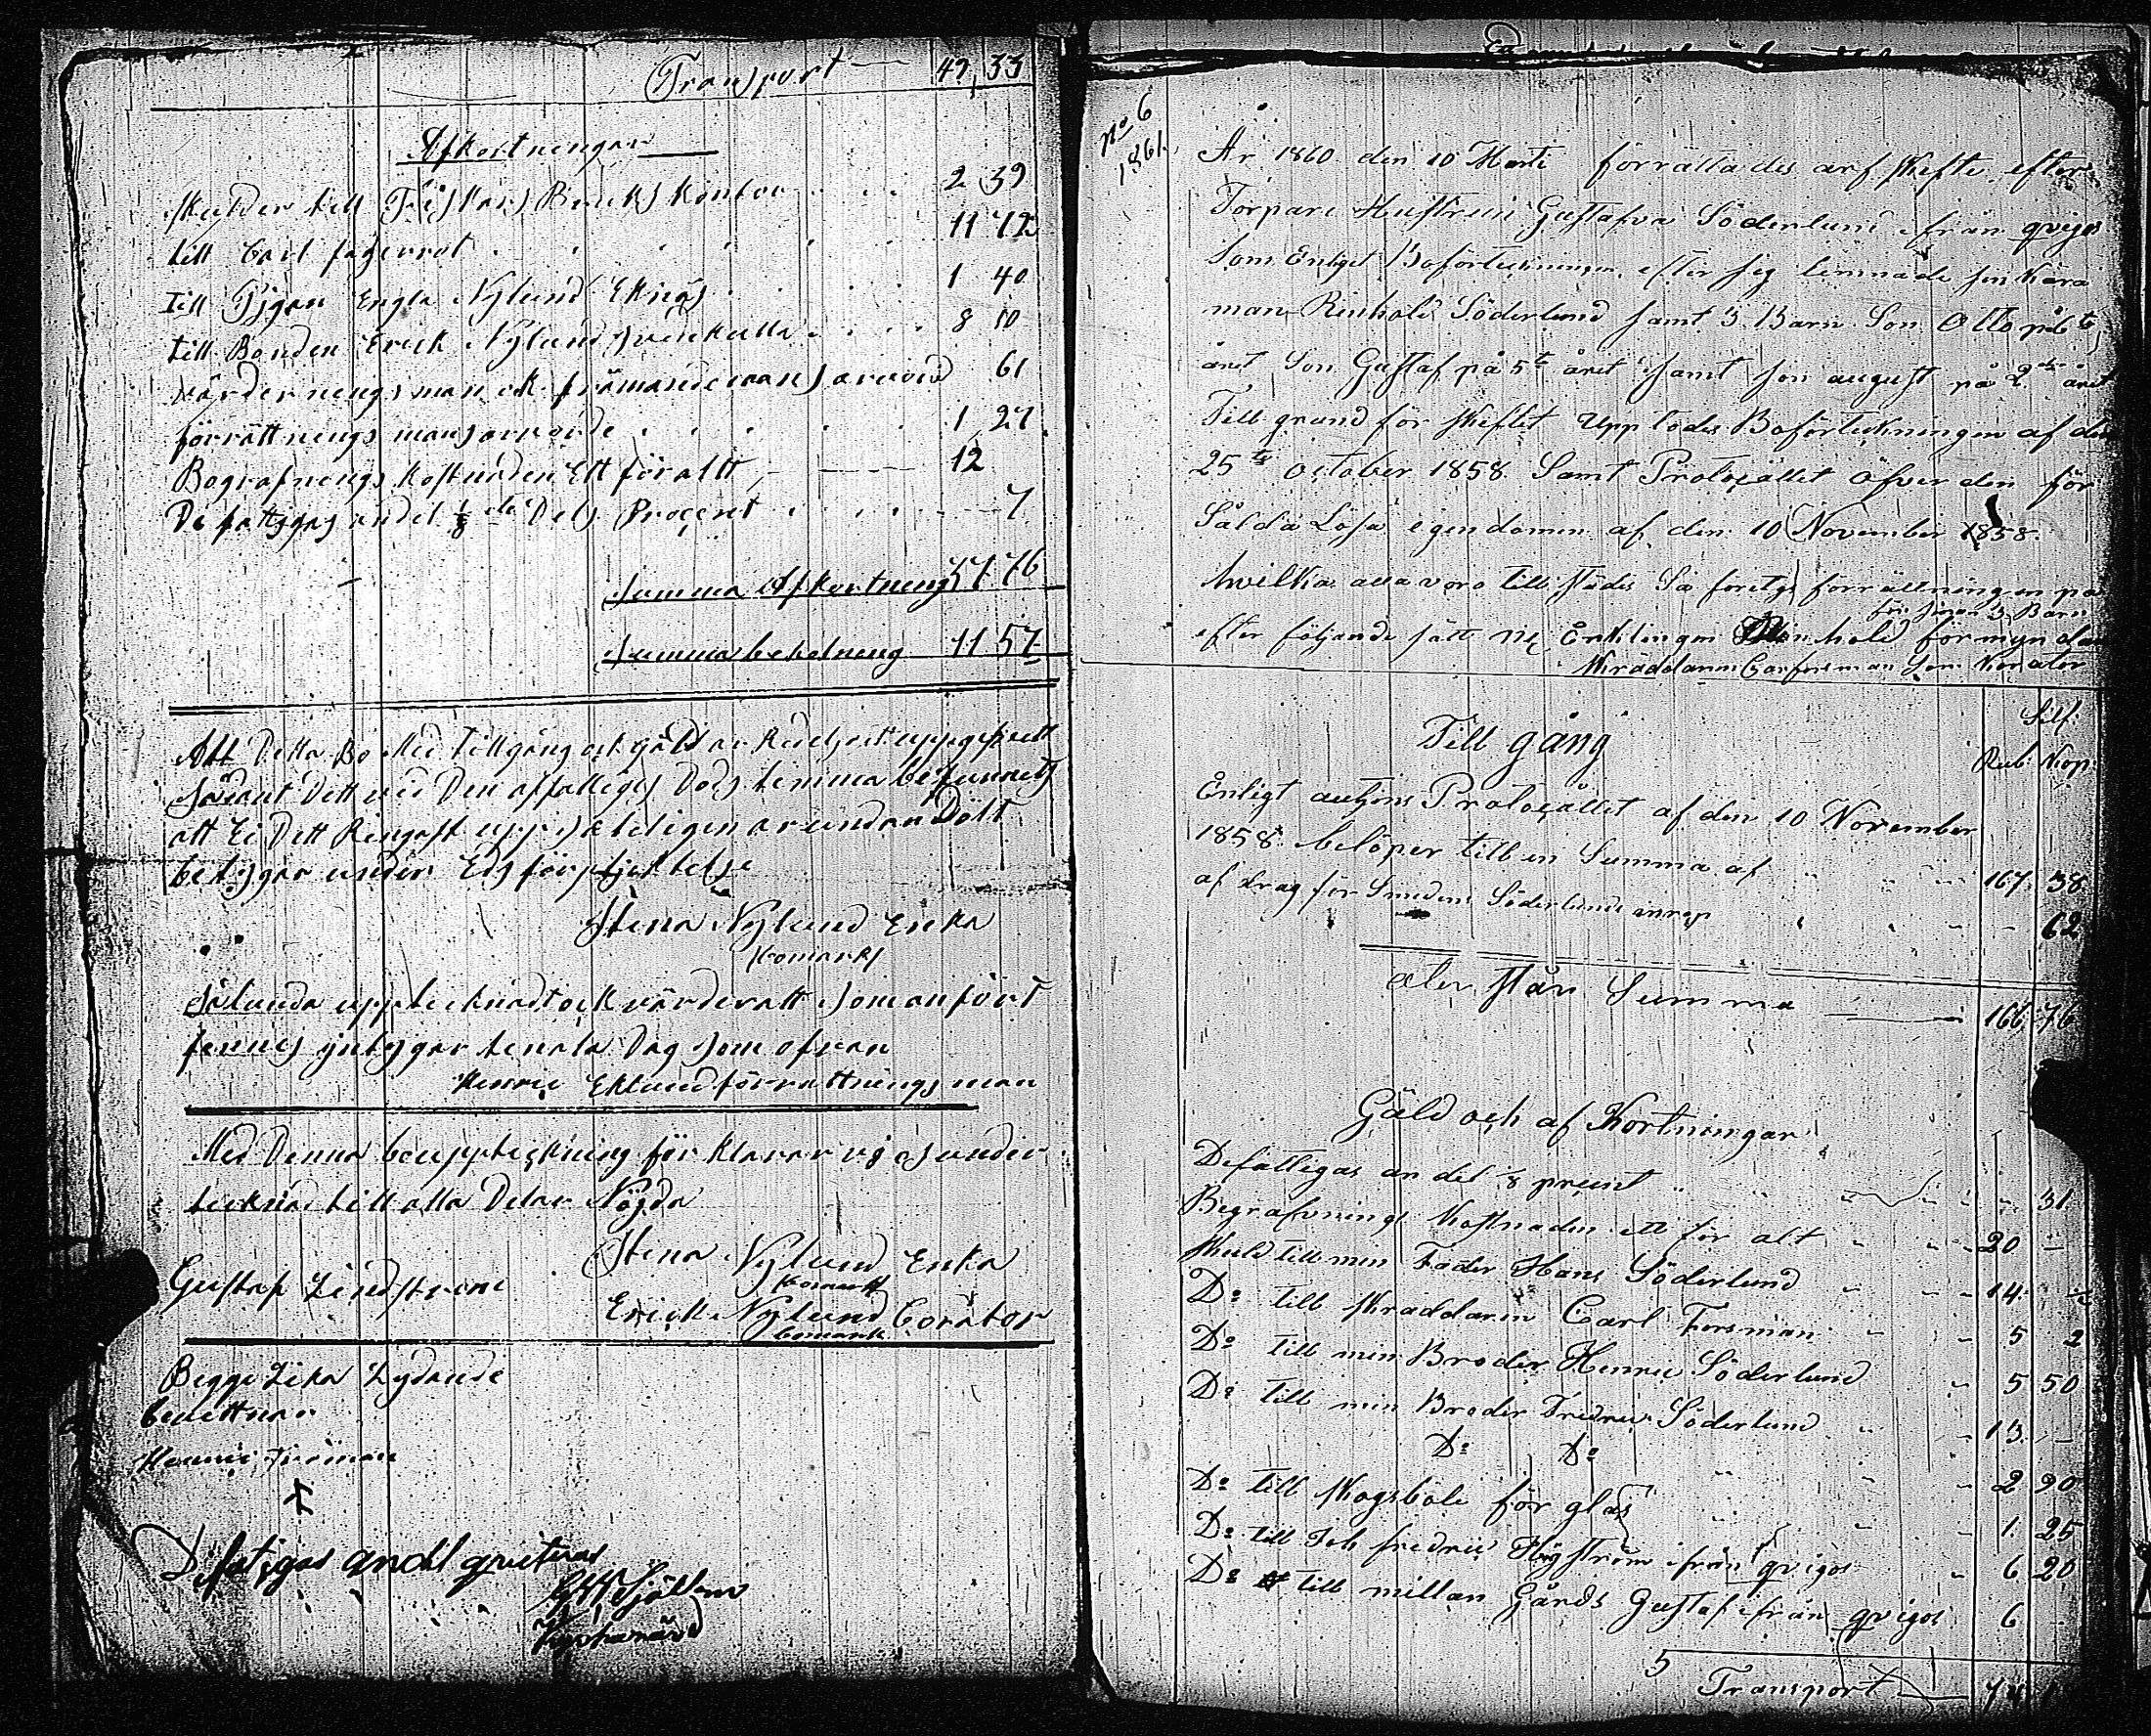 Transport 49,33
Afkortningar
skulder till Fiskars Bruks kontor 2 39
till Carl fagerrot 11 72
till Pigan Engla Nylund Eknäs 1 40
till Bonden Erick Nylund 8 10
värdernings man ock främande mans arvord 61
förrättnings mans arvorde 1 27
Begrafnengs kostnden Ett för allt 12
De fattigas andel 1/8 dels Procent 7
Summa Afkortneng 37 76
Summa beholneng 11 57
Att Detta Bo Med tillgång ock gäld är Redeligt uppgifvett
Sådant Dett vid Den affalliges Död hemma befunnets
att Ei Dett Ringast uppsåteligen är undan Dölt
betygar under Eds förpliktelse
Stena Nylund Enka
bomark
Sålunda upptecknadt ock värderatt som anfört
finnes intygar lenala Dag som ofvan
Henric Eklund förrattnings man
Med Denna bouppteckning för klarar vi os under
tecknade till alla Delar Nöjda
Stena Nylund Enka
bomark
Gustaf Lindstrom
Erick Nylund Corator
bomark
Begge Lika Lydande
bevittnar
Henric Fröman
Defatigas andel qviteras
No 6
1861.
År 1860 den 10 Marti förrättades arf skefte efter
Torpare Hustrun Gustafva Söderlund ifrån qvigos
Som Enligt Boförteckningen efter sig lemnade sin kära
man Rinhold Söderlund samt 3 Barn Son Otto på 6te
året Son Gustaf på 5te året samt son august på 2dra året
Till grund för skeftet Upp lädes Boförteckningen af den
25te October 1858 Samt Protocållet Öfver den för
Sålda Lösa egendomen af den 10 November 1858.
hvilka alla voro till städes Så foretogs förrättningen på
för sina 3 Barn
efter följande sätt Nl. Änklingen Rinhold förmyndare
Skräddaren Carl forsman som Korator
Till gång
Silf:
Rub. Kop.
Enligt autjons Protocållet af den 10 November
1858 belöper till en Summa af 167 38
af drag för Smeden Söderlunds inrop 62
åter står Summa 166 76
Gäld och af Kortningar
Defattigas an del 1/8 precent 31
Begrafvnings Kostnaden ett för alt 20 —
Skuld till min Fader Hans Söderlund 14
Do till Skräddaren Carl Forsman 5 2
Do till min Broder Henric Söderlund 5 50
Do till min Broder Fredric Söderlund 13 —
Do Do 2 90
Do till Skogsböle för glas 1 25
Do till Joh fredric Hägström ifrån qvigos 6 20
Do till millan Gårds Gustaf ifrån qvigos 6
5
Transport 74